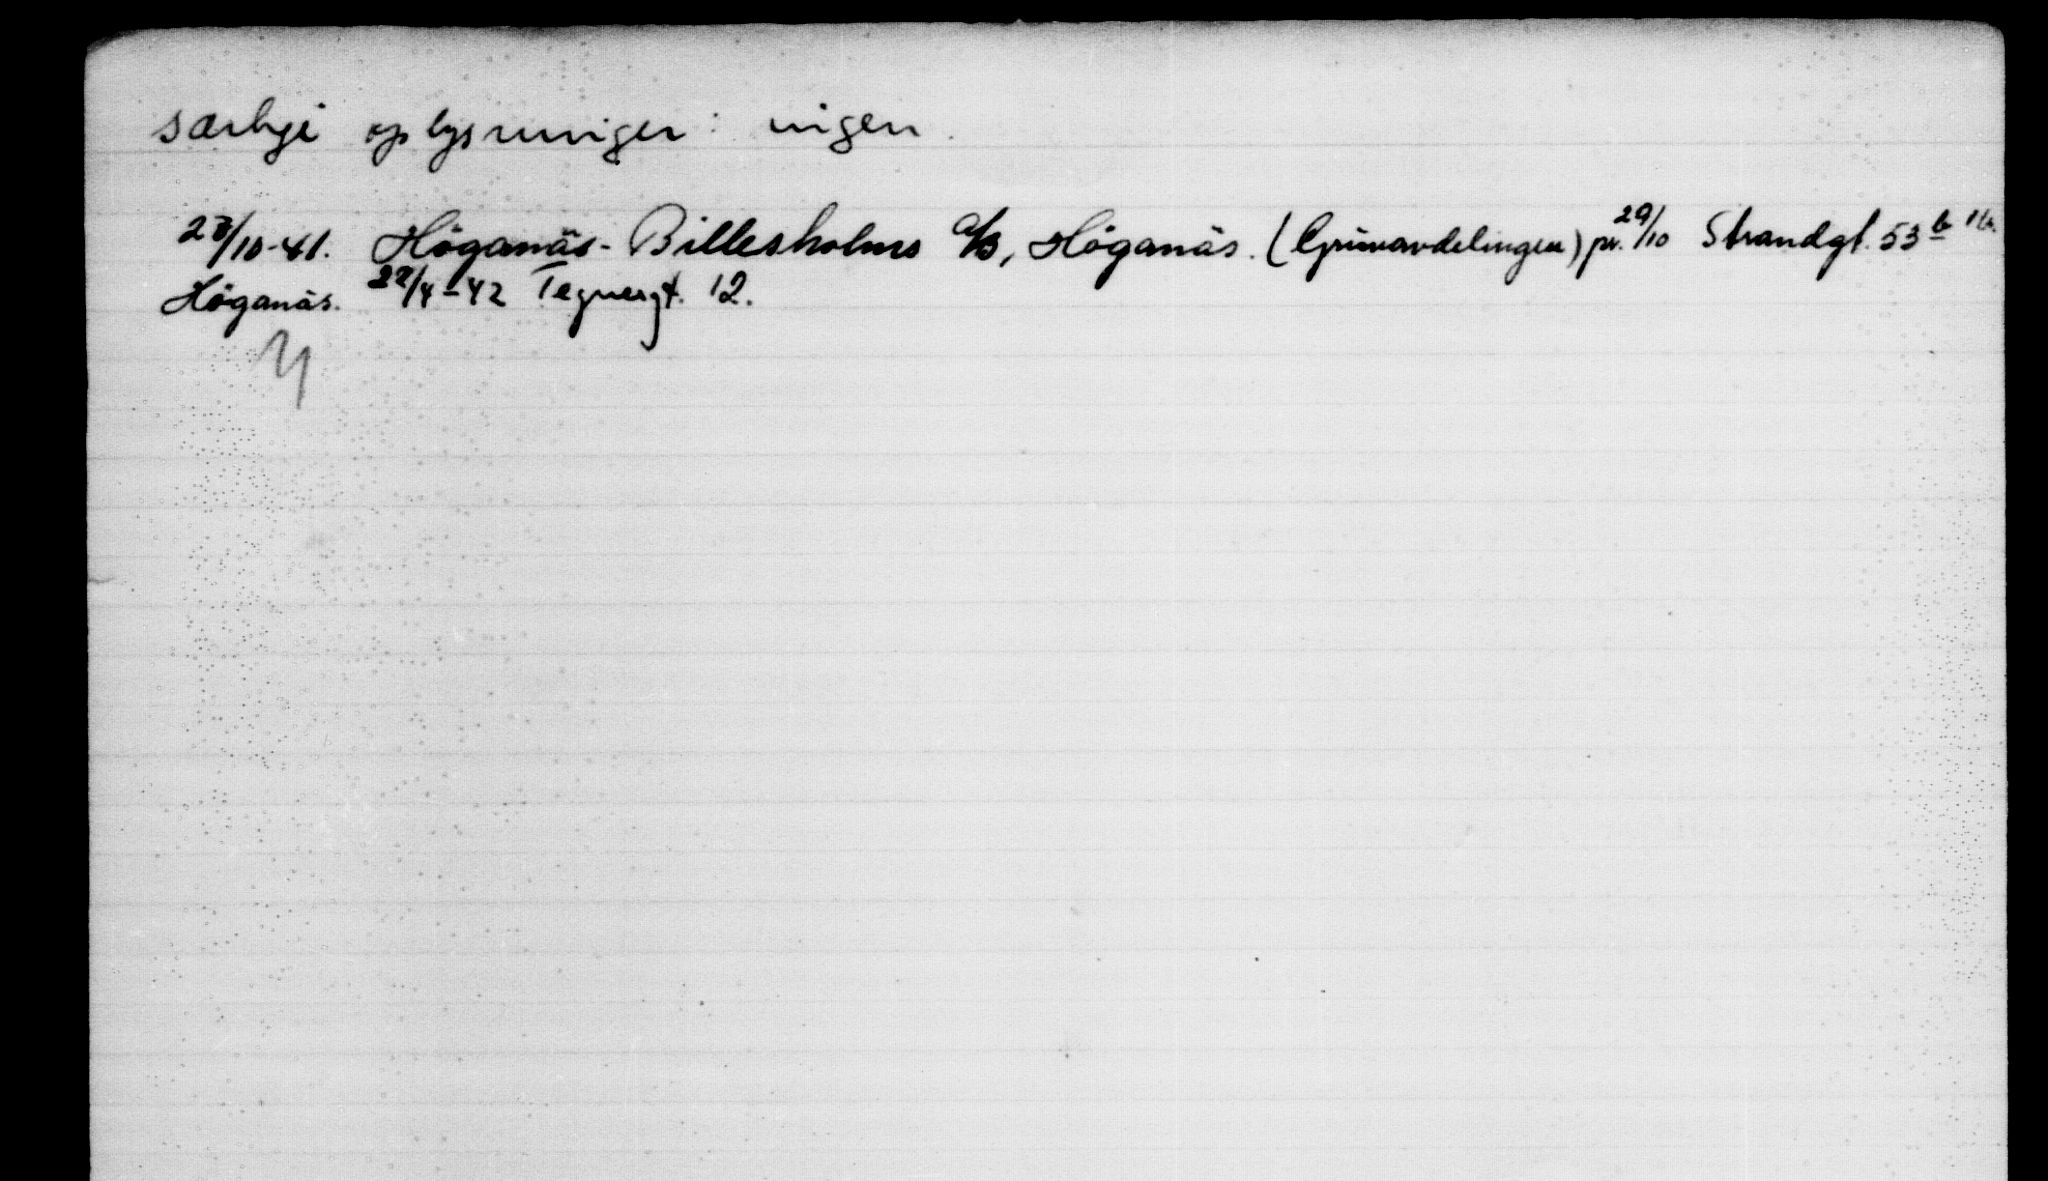 særlige oplysninger: ingen.
23/10-41. Höganäs-Billesholms A/B, Höganäs. (Gruvavdelingen) pr. 29/10 Strandgt. 53 b
Höganäs. 22/4-42 Tegnergt. 12.